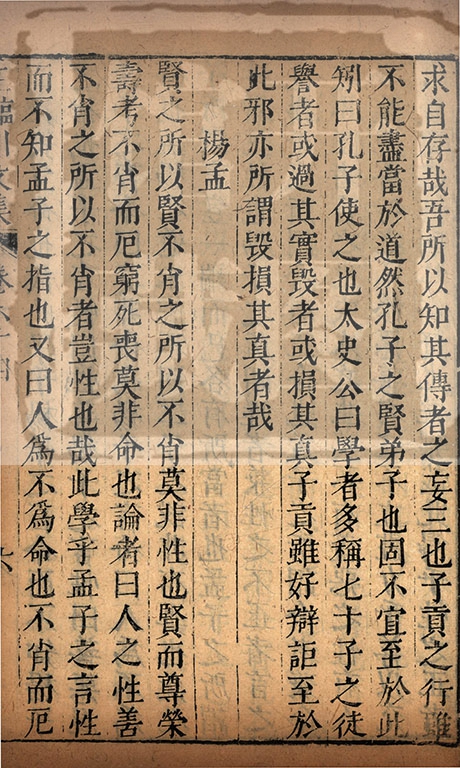 求自存哉吾所以知其傳者之妄三也子貢之行雖
不能盡當於道然孔子之賢弟子也固不宜至於此
矧曰孔子使之也太史公曰學者多稱七十子之徒
譽者或過其實毀者或損其真子貢雖好辯詎至於
此邪亦所謂毀損其真者哉
楊孟
賢之所以賢不肖之所以不肖莫非性也賢而尊榮
壽考不肖而厄窮死喪莫非命也論者曰人之性善
不肖之所以不肖者豈性也哉此學乎孟子之言性
而不知孟子之指也又曰人爲不爲命也不肖而厄